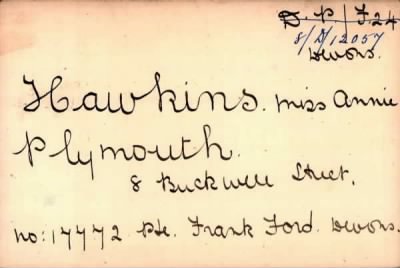 D. P / F. 24
8/D/12057
Devons.
Hawkins. Miss Annie
Plymouth.
8 Buckwell Street.
no: 17772 Pte. Frank Ford. Devons.